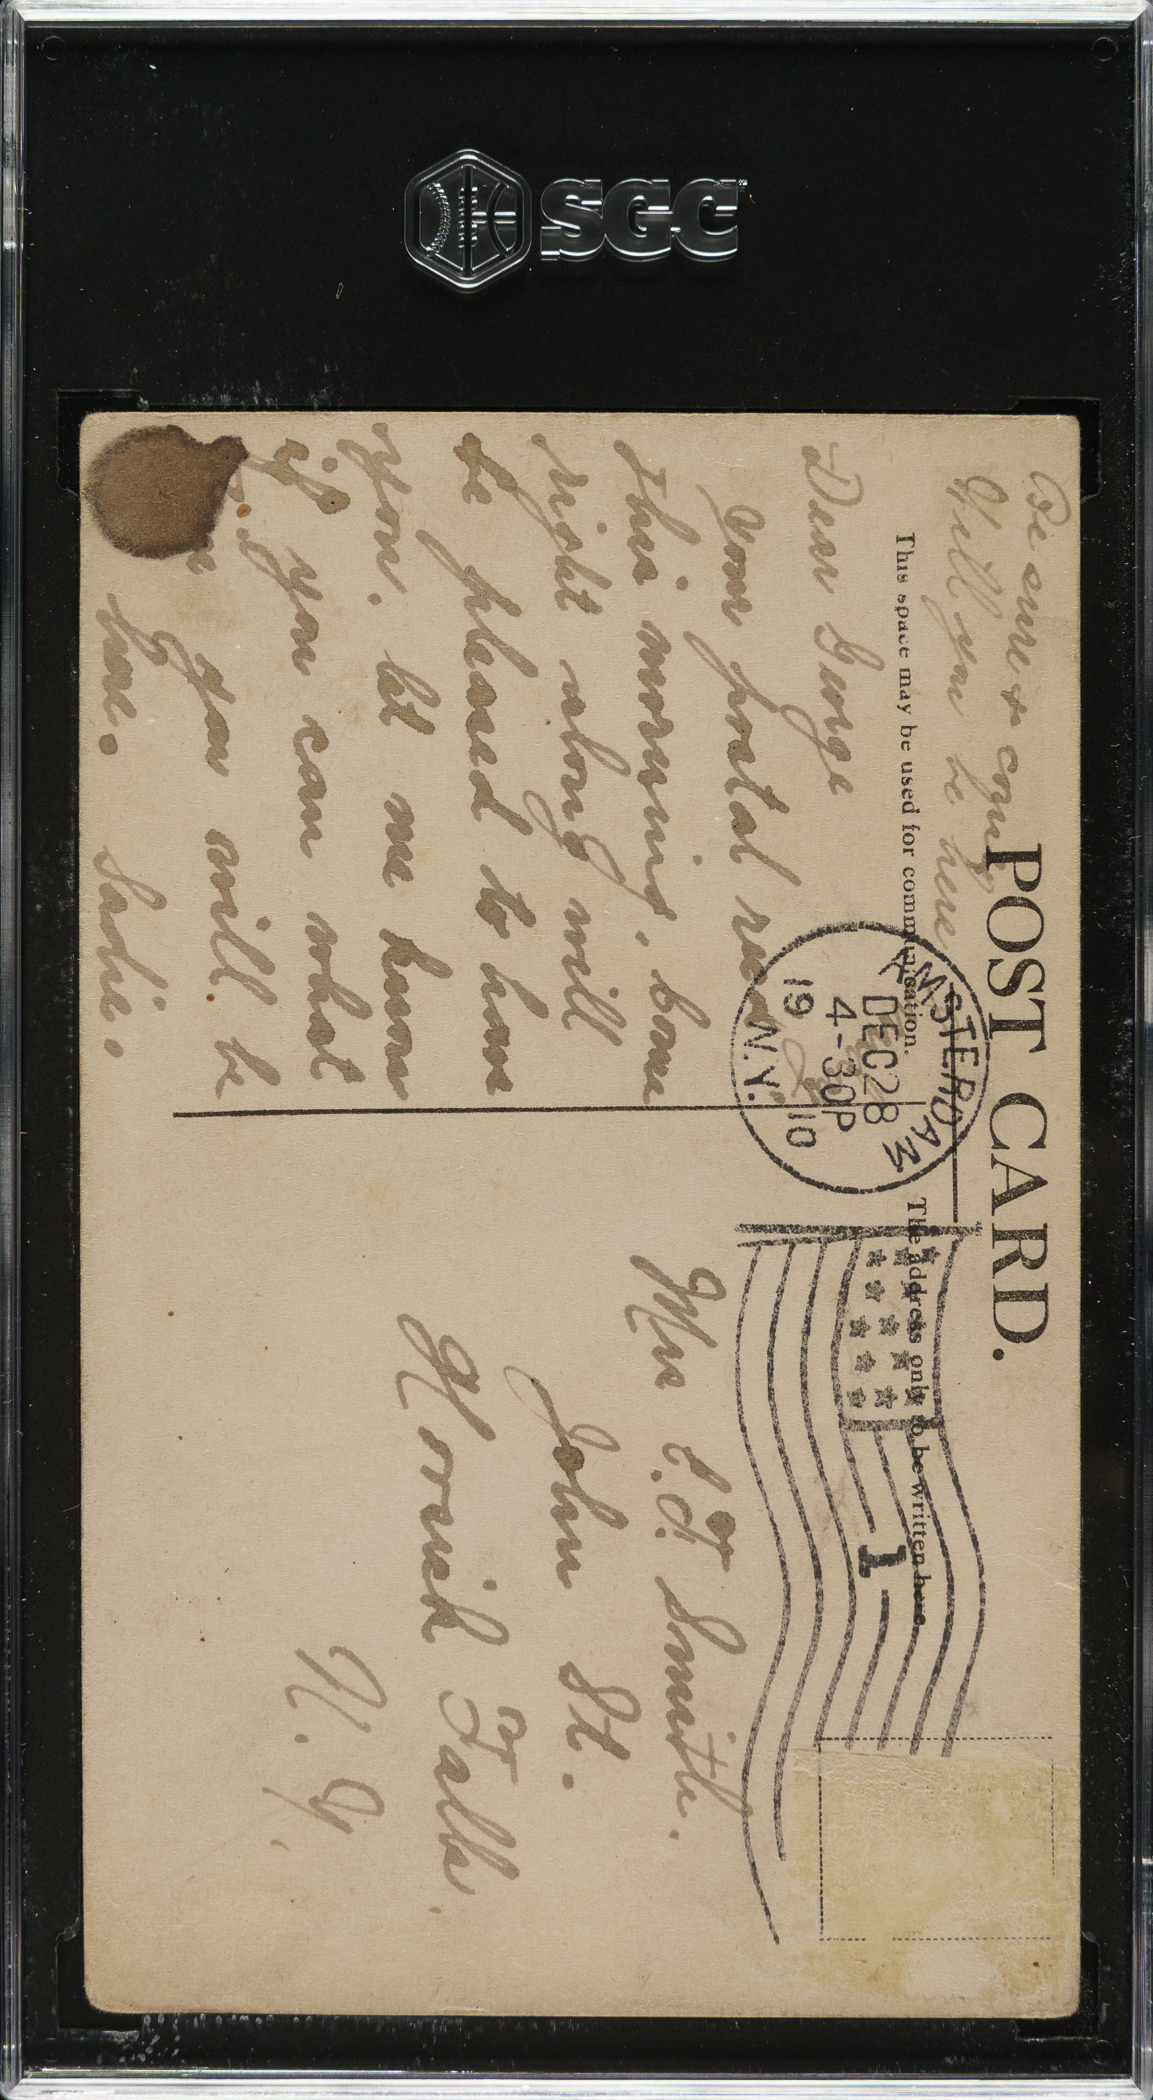 SGC
Be sure & come
Will you be here
POST CARD.
This space may be used for communication.
The address only to be written here
AMSTERDAM
DEC 28
4-30P
19 10
N.Y.
1
Dear George
Your postal recd
this morning. Come
right along will
be pleased to have
you. let me know
if you can what
you will be
here.
Sadie.
Mr C. F. Smith.
John St.
Hoosick Falls.
N. Y.